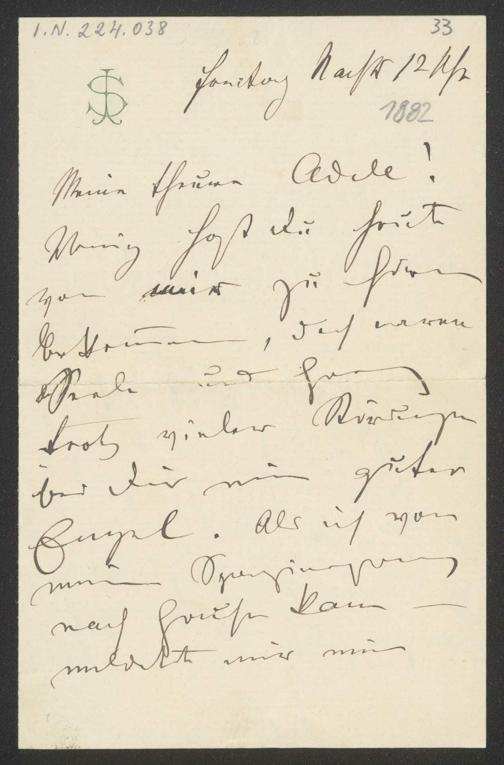 I.N. 224.038
33
JS
Sonntag Nachts 12 Uhr
1882
Meine theure Adele!
Wenig hast du heute
von mir zu hören
bekommen, doch waren
Seele und Herz
trotz vieler Störungen
bei dir mein guter
Engel. Als ich von
meinem Spaziergang
nach Hause kam –
meldete mir mein